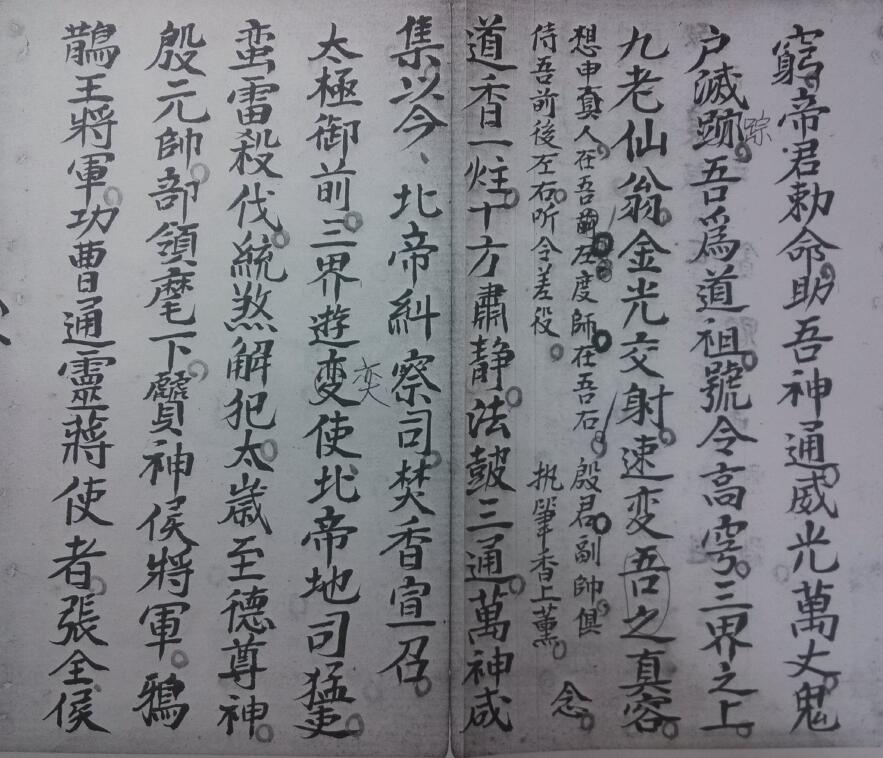 窮。帝君勅命。助吾神通。威光萬丈。鬼
户滅跡。踪吾爲道祖。號令高穹。三界之上。
九老仙翁。金光交射。速変吾之真容。
想申真人。在吾前左。度師在吾右。殷君副帥俱
侍吾前後左右。听令差役。 执筆香上薰。 念。
道香一炷。十方肅静。法鼓三通。萬神咸
集。以今、北帝糾察司。焚香宣召。
太極御前。三界遊变奕使。北帝地司猛吏。
蛮雷殺伐。統煞解犯。太歲至德尊神。
殷元帥。部領麾下。神侯將軍。鴉
鵲王將軍。功曹通靈蔣使者。張全侯